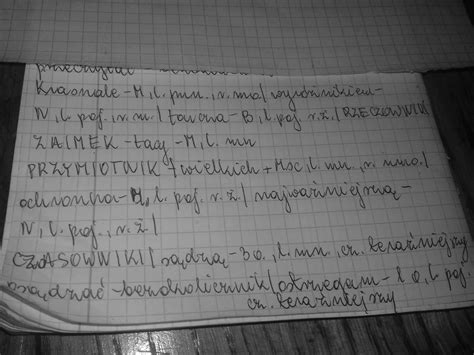 Krasnale - M, l. mn., r. mo / wyróżnikiem -
N, l. poj., r. m / - B, l. poj. r. ż. / RZECZOWNIK
ZAIMEK - tacy - M, l. mn
PRZYMIOTNIK / wielkich + Msc, l. mn., r. nmo. /
ochronna - M, l. poj. r. ż. / najważniejszą -
N, l. poj., r. ż /
CZASOWNIKI / sądzą - 3 o., l. mn., cz. teraźniejszy
osądzać - bezokolicznik / ostrzegam - 1 o, l. poj
cz. teraźniejszy